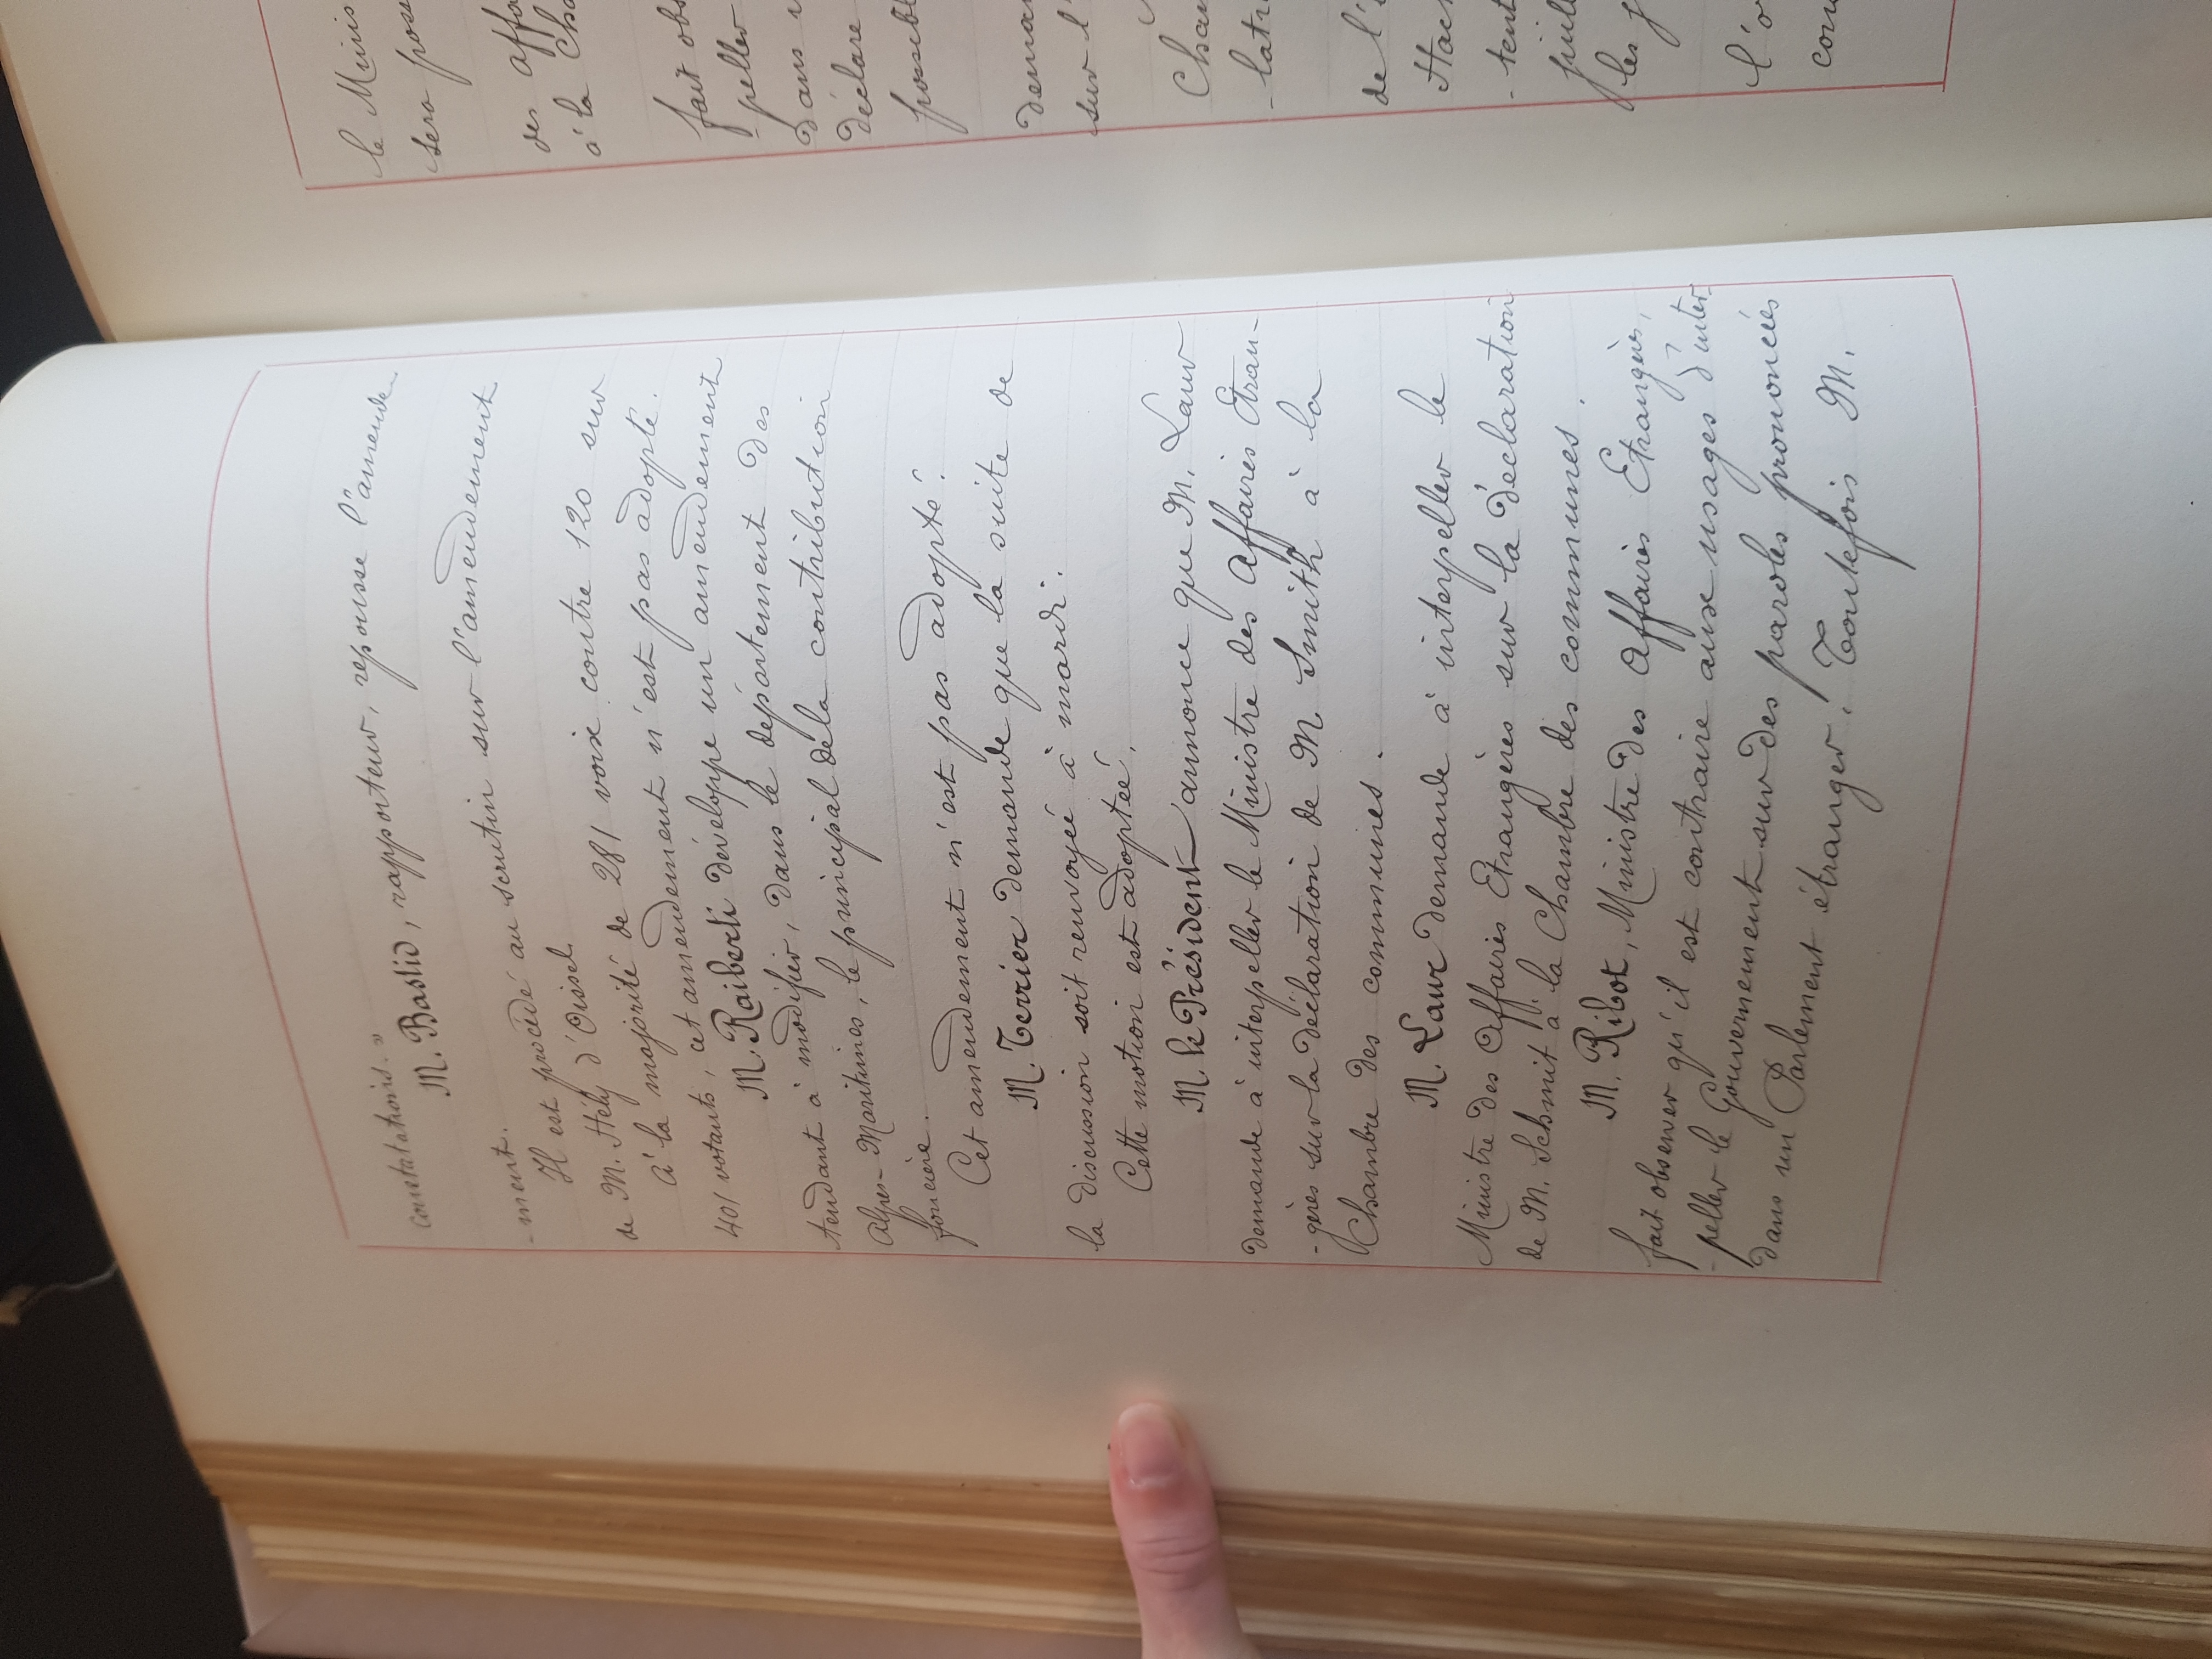 constatations. »
M. Bastid, rapporteur, repousse l'amende-
-ment.
Il est procédé au scrutin sur l'amendement
de M. Hély d'Oissel.
À la majorité de 281 voix contre 120 sur
401 votants, cet amendement n'est pas adopté.
M. Raiberti développe un amendement
tendant à modifier, dans le département des
Alpes-Maritimes, le principal de la contribution
foncière.
Cet amendement n'est pas adopté.
M. Terrier demande que la suite de
la discussion soit renvoyée à mardi.
Cette motion est adoptée.
M. le Président annonce que M. Laur
demande à interpeller le Ministre des Affaires Etran-
-gères sur la déclaration de M. Smith à la
Chambre des communes.
M. Laur demande à interpeller le
Ministre des Affaires Etrangères sur la déclaration
de M. Schmit à la Chambre des communes.
M. Ribot, Ministre des Affaires Etrangères,
fait observer qu'il est contraire aux usages d'inter-
-peller le Gouvernement sur des paroles prononcées
dans un Parlement étranger. Toutefois M.
le Minis
sera posé
des Affa
à la Cha
fait obs
-peller
dans u
déclare
possible
deman
sur l
Cham
-latr
de l'
Hac
-tent
puil
les f
l'o
com